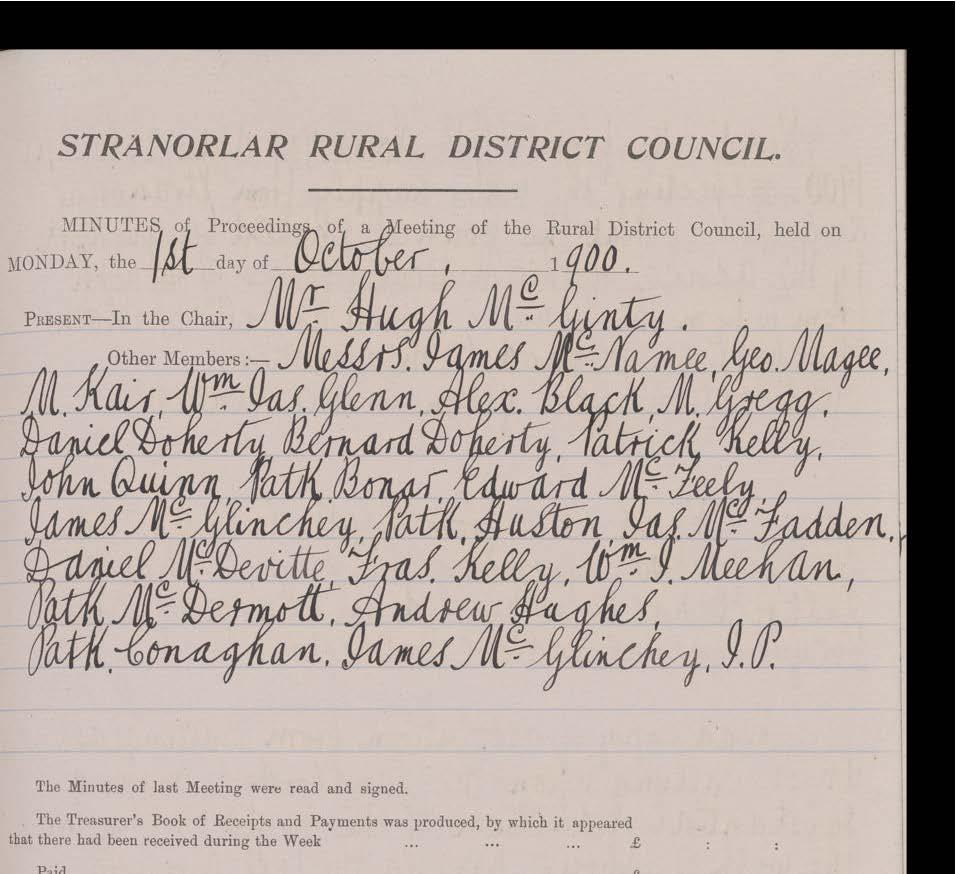 STRANORLAR RURAL DISTRICT COUNCIL.
MINUTES of Proceedings of a Meeting of the Rural District Council, held on
MONDAY, the 1st day of October, 1900.
PRESENT—In the Chair, Mr Hugh McGinty.
Other Members:— Messrs. James McNamee, Geo. Magee,
M. Kair, Wm Jas. Glenn, Alex. Black, M. Gregg,
Daniel Doherty, Bernard Doherty, Patrick Kelly,
John Quinn, Patk Bonar, Edward McFeely,
James McGlinchey, Patk. Huston, Jas. McFadden,
Daniel McDevitte, Fras. Kelly, Wm J. Meehan,
Patk McDermott, Andrew Hughes,
Patk. Conaghan, James McGlinchey, J.P.
The Minutes of last Meeting were read and signed.
The Treasurer's Book of Receipts and Payments was produced, by which it appeared
that there had been received during the Week ... ... ... £ : :
Paid